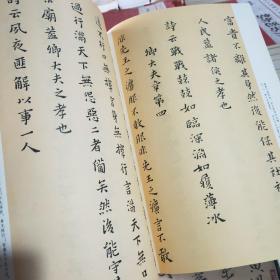 不離其身然後能保其社
人民蓋諸侯之孝也
詩云戰戰兢兢如臨深淵如履薄冰
卿大夫章第四
非先王之灋服不敢服非先王之灋言不敢
擇行言滿天下無口
過行滿天下無怨惡三者備矣然後能守
廟蓋卿大夫之孝也
詩云夙夜匪解以事一人